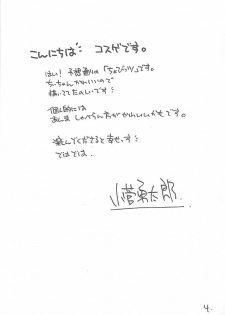 こんにちは コスゲです。
はい！予想通りの「ちょびっツ」です。
ちぃちゃんかわいいので
描いててたのしいです
個人的には
あんましゃべらん方がかわいいかもです。
遊んでくださると幸せっす
ではでは。
小菅勇太郎
4.